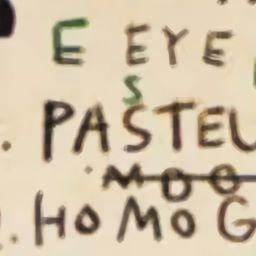 E EYE
S
PASTEL
MOO
HOMOG